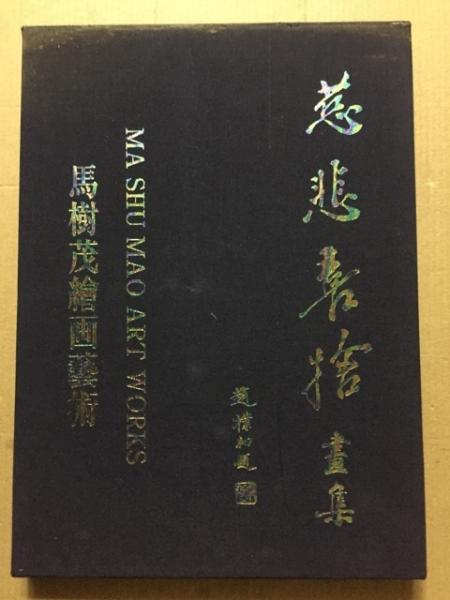 慈悲喜捨 畫集
趙樸初題
MA SHU MAO ART WORKS
馬樹茂繪画藝術